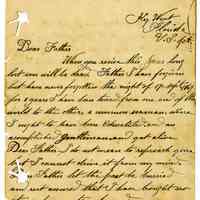 Key West
Florida
U.S. of A.
Dear Father
When you receive this your long
lost son will be dead. Father I have forgiven
but have never forgotten the night of
for years I have been driven from one end of the
world to the other a common seaman when
I ought to have been educated and an
accomplished Gentleman and got alive
Dear Father. I do not mean to reproach you
but I cannot drive it from my mind
Father let the past be buried
and rest assured that I have bought